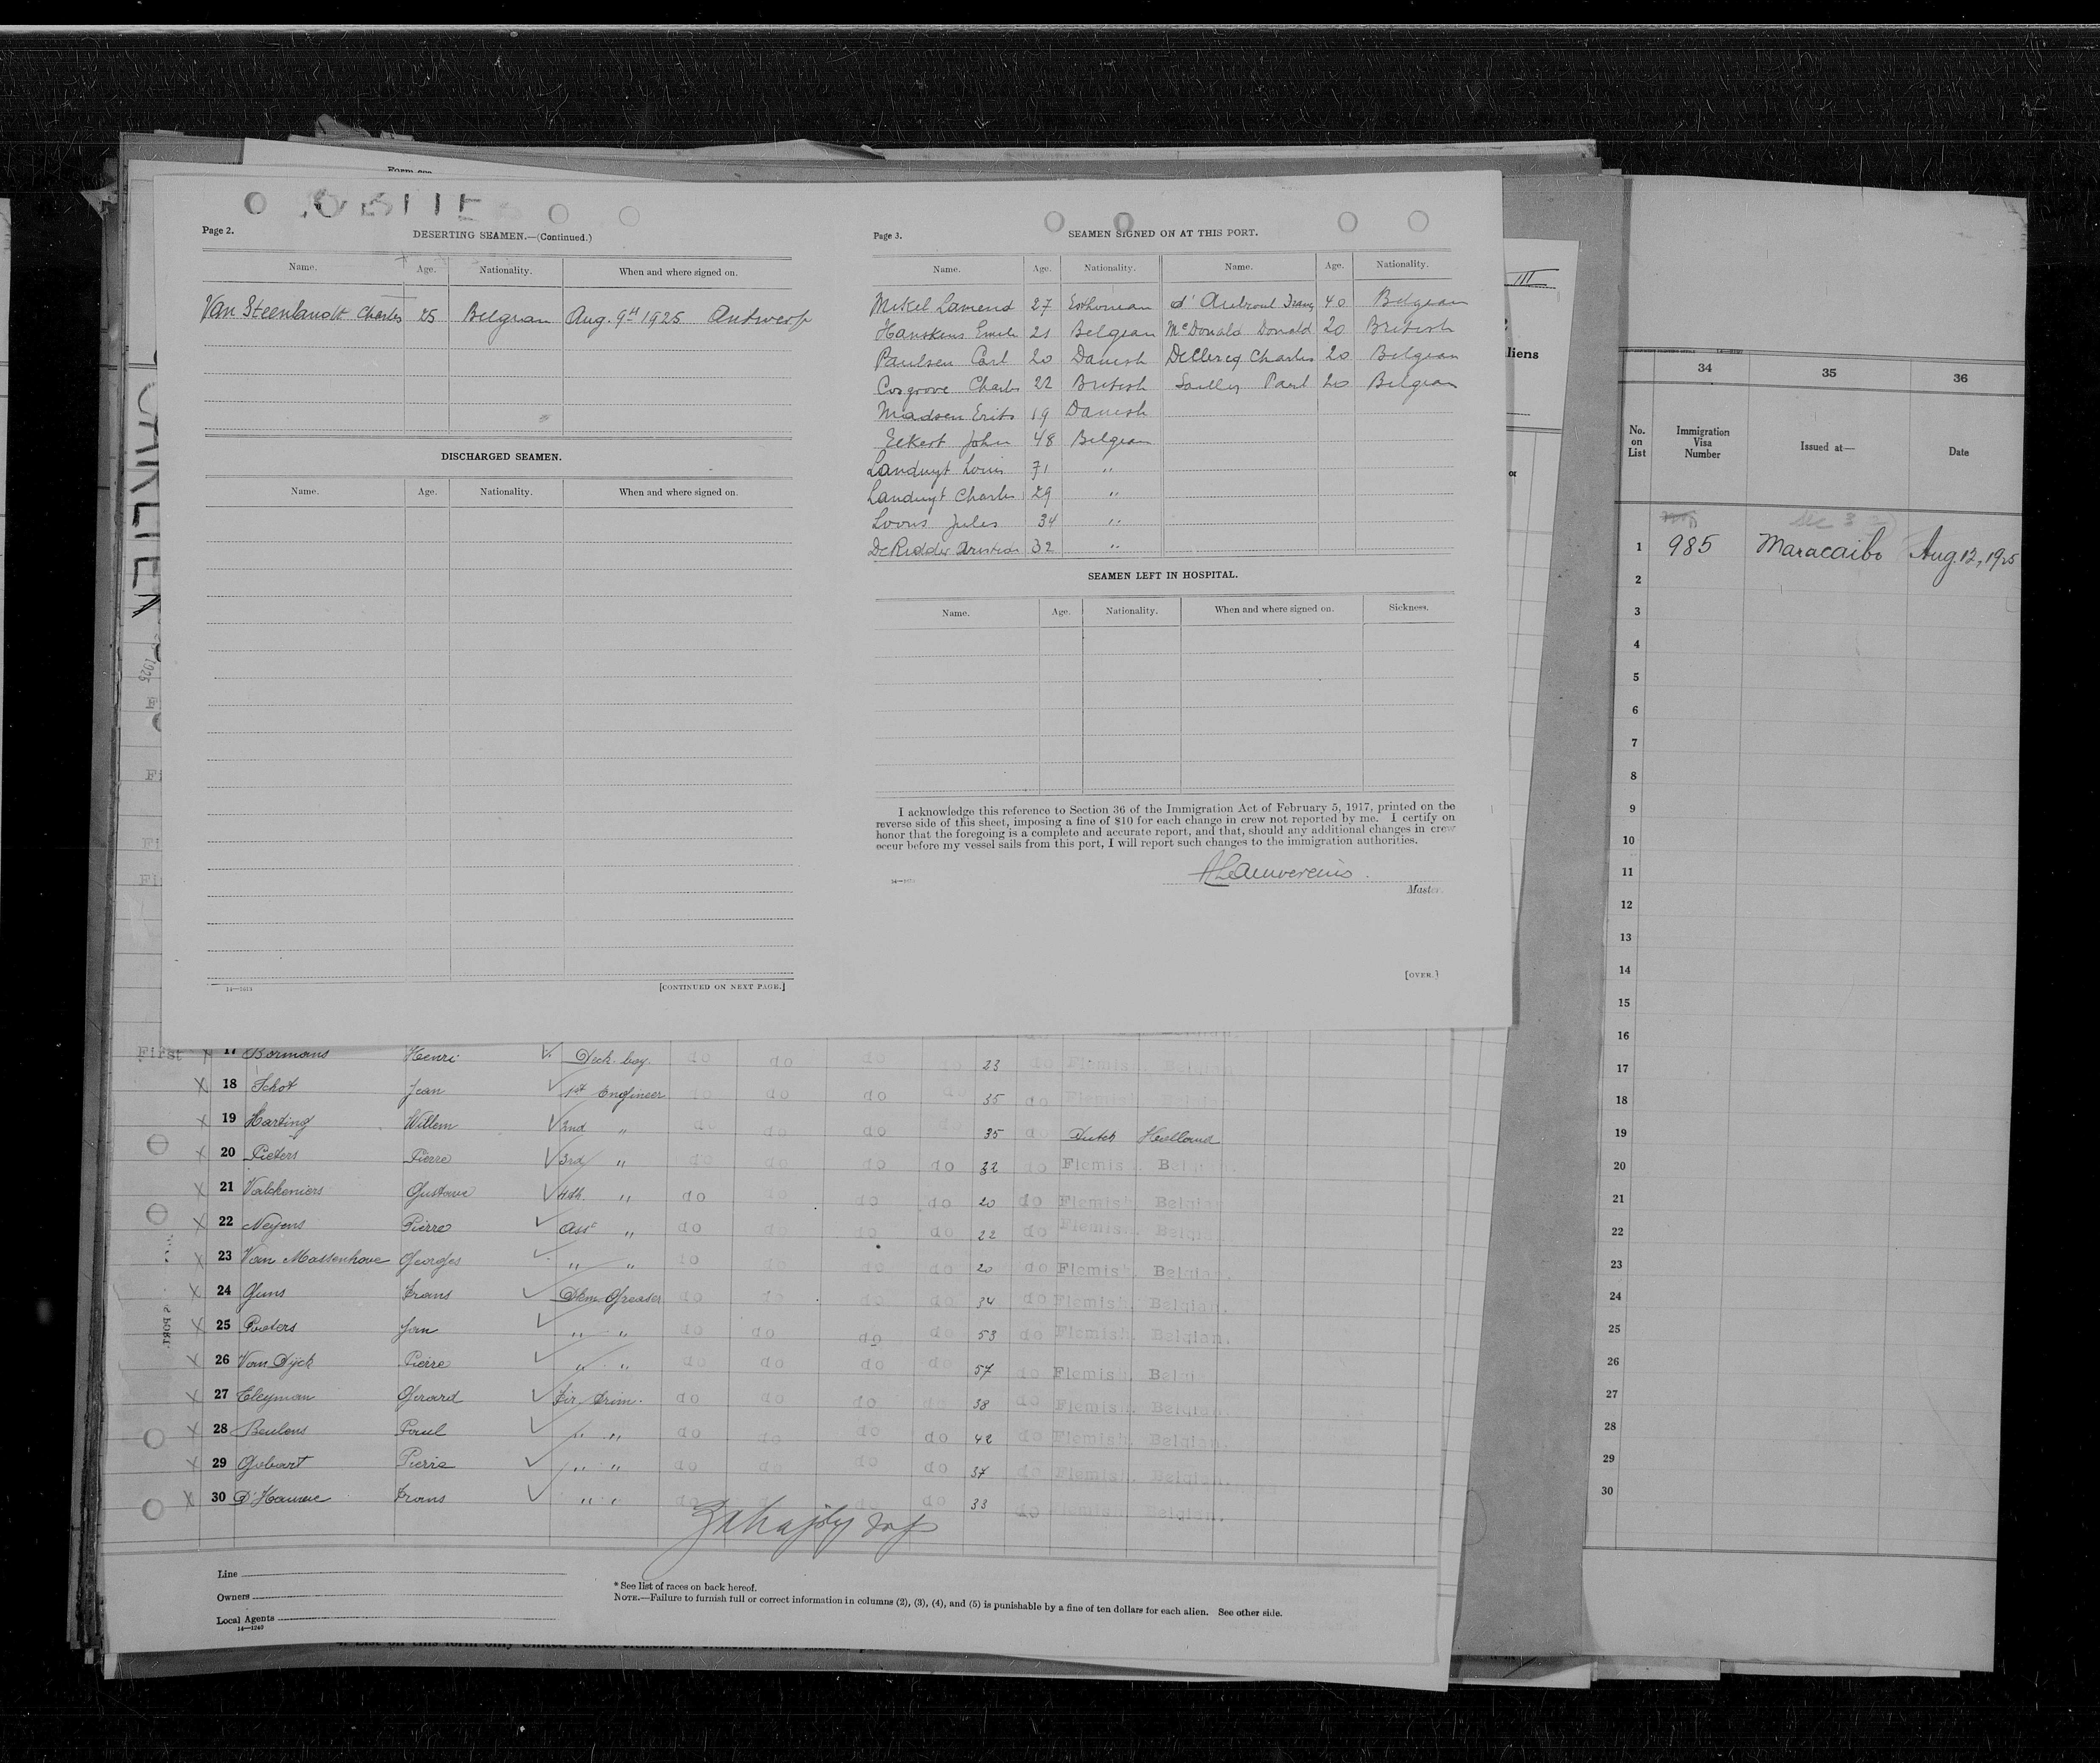 Page 2.
DESERTING SEAMEN.—(Continued.)
Name. Age. Nationality. When and where signed on.
Van Steenlandt Charles 25 Belgian Aug. 9th 1925 Antwerp
DISCHARGED SEAMEN.
Name. Age. Nationality. When and where signed on.
[CONTINUED ON NEXT PAGE.]
Page 3.
SEAMEN SIGNED ON AT THIS PORT.
Name. Age. Nationality. Name. Age. Nationality.
Mikel Lamend 27 Esthonian d'Aubroul 40 Belgian
Hanskens Emile 21 Belgian McDonald Donald 20 British
Paulsen Carl 20 Danish DeClercq Charles 20 Belgian
Cosgrove Charles 22 British Paul 20 Belgian
Madsen Erits 19 Danish
Elkert John 48 Belgian
Landuyt Louis 71 "
Landuyt Charles 29 "
Loons Jules 34 "
DeRidder 32 "
SEAMEN LEFT IN HOSPITAL.
Name. Age. Nationality. When and where signed on. Sickness.
I acknowledge this reference to Section 36 of the Immigration Act of February 5, 1917, printed on the
reverse side of this sheet, imposing a fine of $10 for each change in crew not reported by me. I certify on
honor that the foregoing is a complete and accurate report, and that, should any additional changes in crew
occur before my vessel sails from this port, I will report such changes to the immigration authorities.
Master.
[OVER.]
III
liens
First 17 Bormans Henri Deck boy. do do do do 23 do Flemish. Belgian.
18 Schot Jean 1st Engineer do do do do 35 do Flemish Belgian
19 Harting Willem 2nd " do do do 35 d Dutch Holland
20 Pieters Pierre 3rd " do do do 32 do Flemish Belgian.
21 Valckeniers Gustave 4th " do do do do 20 do Flemish. Belgian
22 Neyens Pierre Asst " do do do do 22 do Flemish. Belgian.
23 Van Massenhove Georges " " do do do do 20 do Flemish. Belgian.
24 Guns Frans Dkm Greaser do do do 34 do Flemish. Belgian.
25 Peeters Jan " " do do do do 53 do Flemish. Belgian.
26 Van Dyck Pierre " " do do do do 57 do Flemish. Belgi
27 Eleyman Gerard Fir. Trim. do do do do 38 do Flemish. Belgian.
28 Beulens Paul " " do do do do 42 do Flemish. Belgian.
29 Gobart Pierre " " do do do do 37 do Flemish. Belgian.
30 D'Hauwe Frans " " do do do 33 do Flemish. Belgian.
Line
Owners
Local Agents
14—1240
* See list of races on back hereof.
NOTE.—Failure to furnish full or correct information in columns (2), (3), (4), and (5) is punishable by a fine of ten dollars for each alien. See other side.
34 35 36
No. on List Immigration Visa Number Issued at— Date
1 985 Maracaibo Aug. 12, 1925
2
3
4
5
6
7
8
9
10
11
12
13
14
15
16
17
18
19
20
21
22
23
24
25
26
27
28
29
30